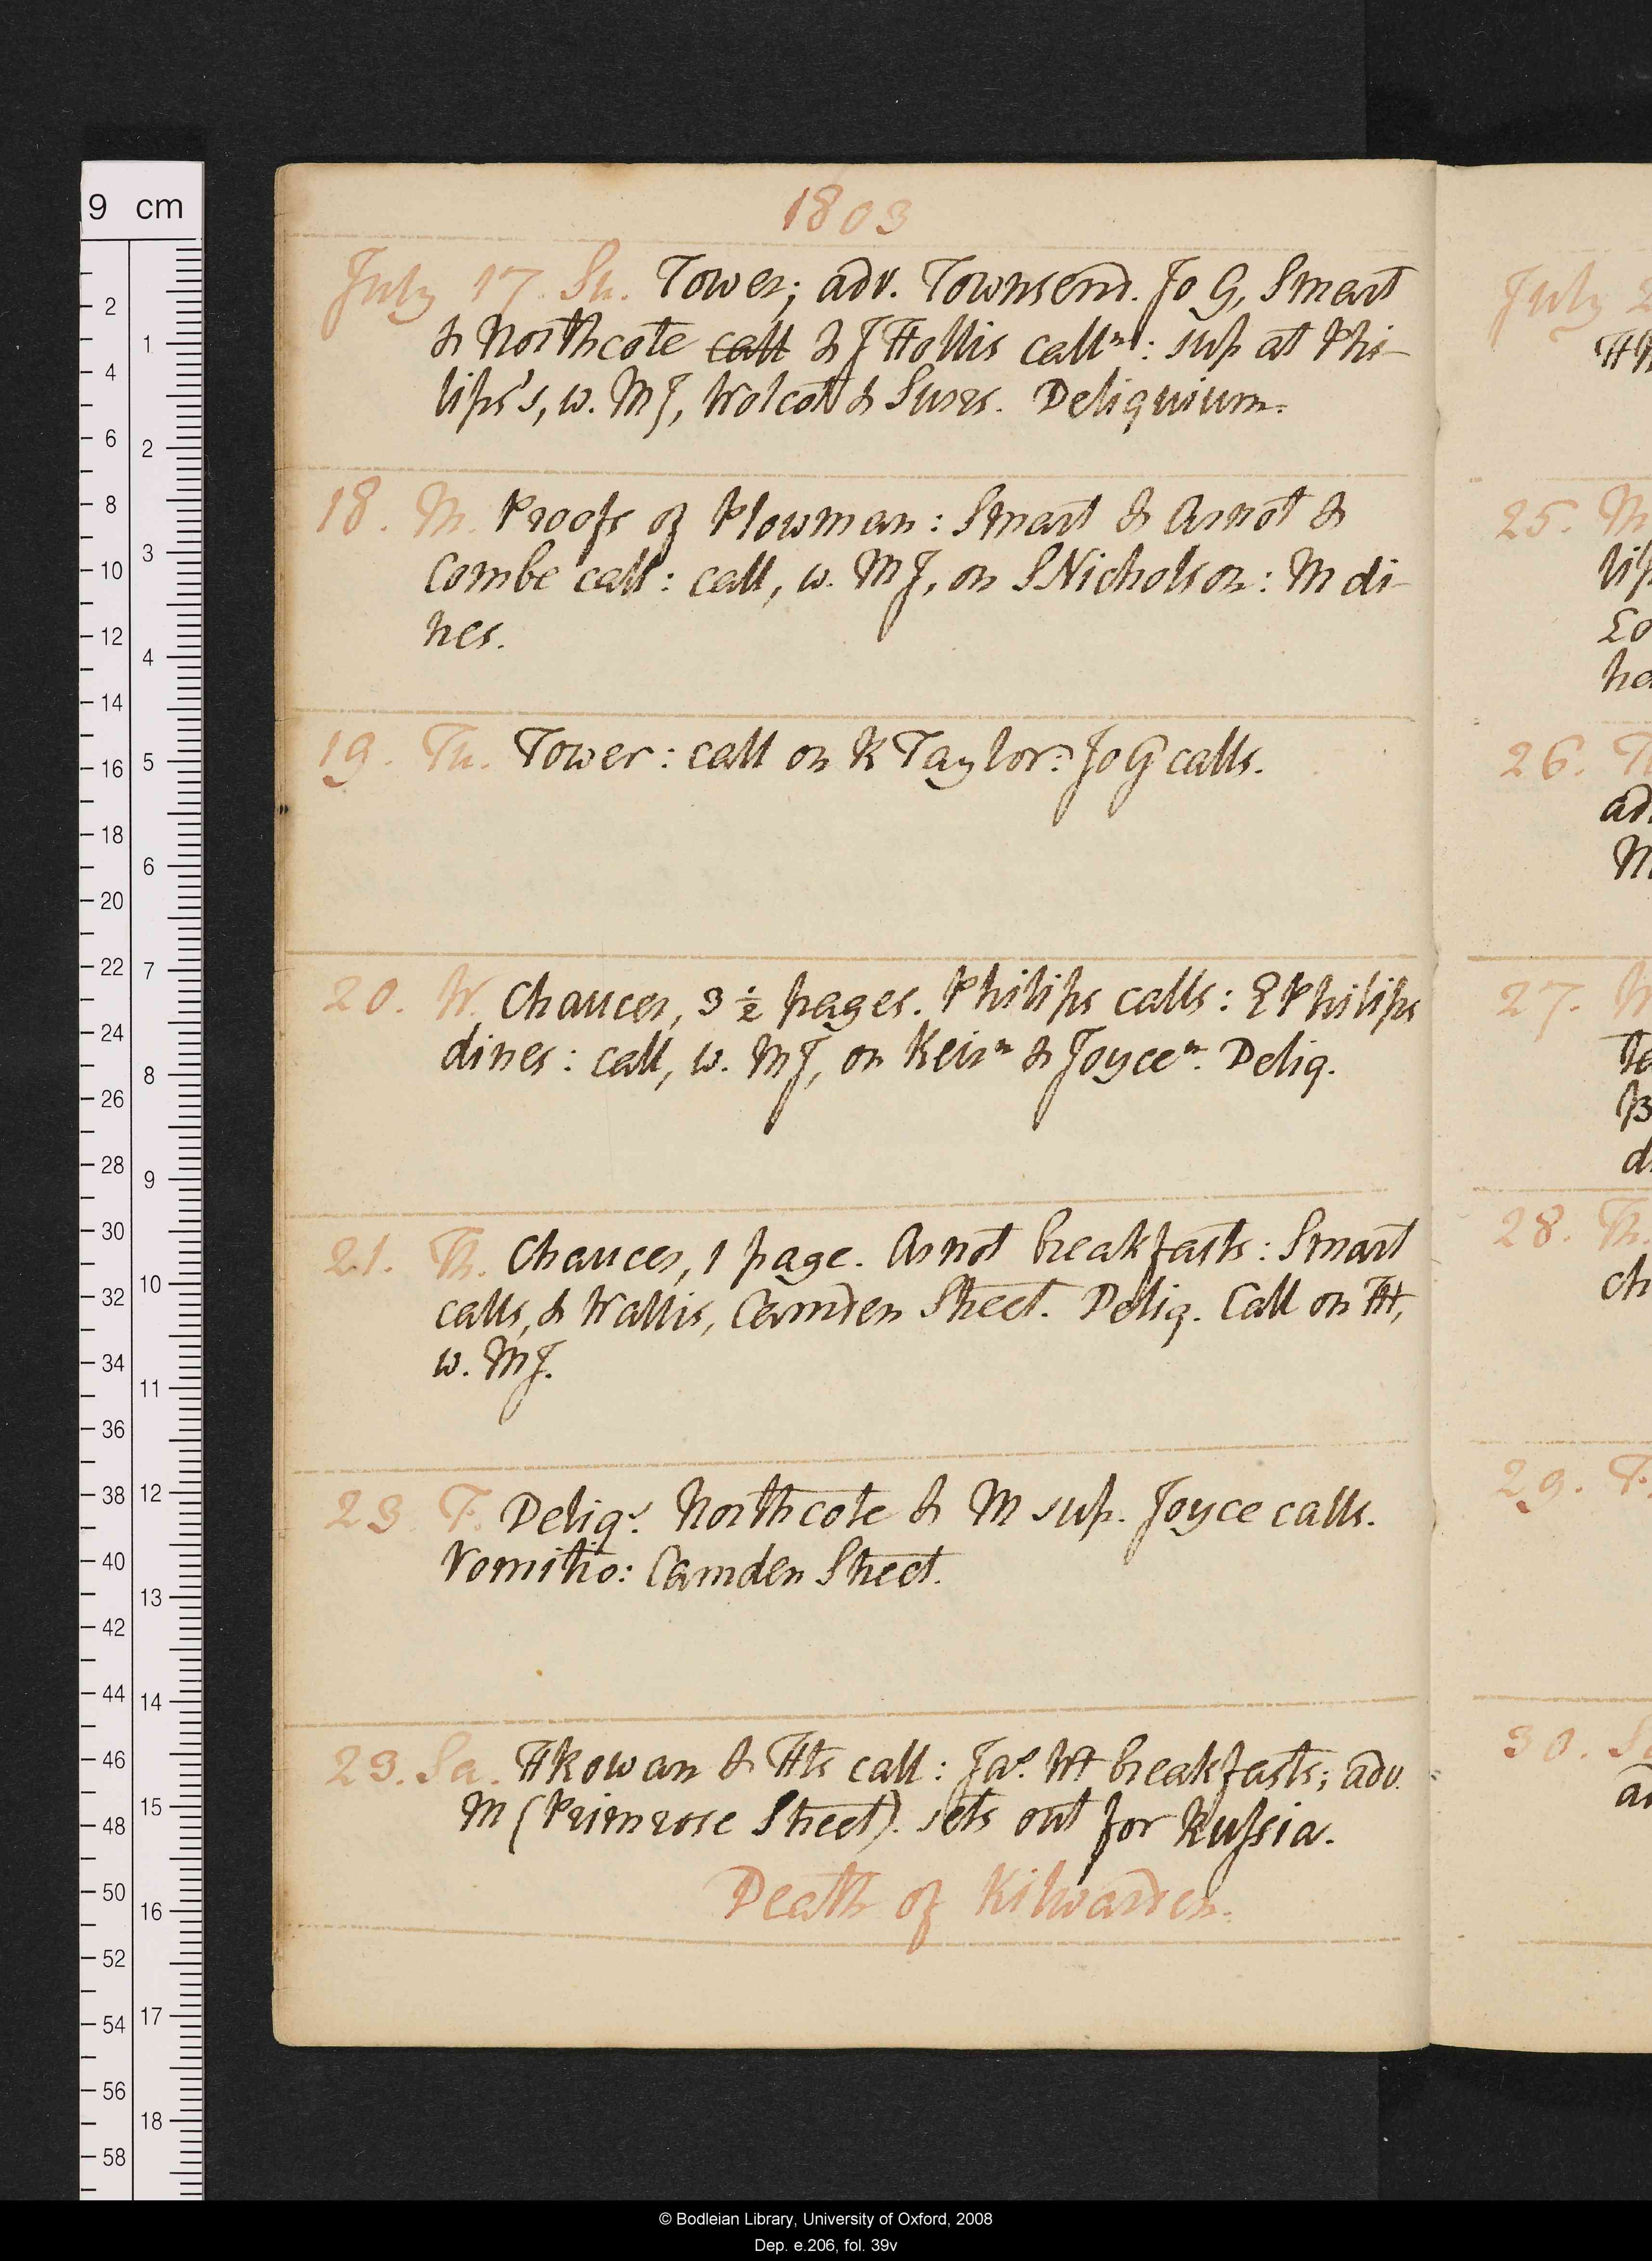 1803
July 17. Su. Tower; adv. Townsend. Jo G, Smart
& Northcote call & J Hollis callⁿ: sup at Phi-
lips's, w. MJ, Wolcot & Surrs. Deliquium.
18. M. Proofs of Plowman: Smart & Arnot &
Combe call: call, w. MJ, on S Nicholson: M di-
nes.
19. Tu. Tower: call on R Taylor: Jo G calls.
20. W. Chaucer, 3 ½ pages. Philips calls: E Philips
dines: call, w. MJ, on Keirⁿ & Joyceⁿ. Deliq.
21. Th. Chaucer, 1 page. Arnot breakfasts: Smart
calls, & Wallis, Camden Street. Deliq. Call on TH,
w. MJ.
23. F. Deliqˢ. Northcote & M sup. Joyce calls.
Vomitio: Camden Street.
23. Sa. HRowan & Hts call: Jaˢ. Wt breakfasts; adv.
M (Primrose Street). sets out for Russia.
Death of Kilwarden.
July 2
25. M
lip
Lo
26. T
ad
M
27.
28. Th.
ch
29. F.
30. S
© Bodleian Library, University of Oxford, 2008
Dep. e.206, fol. 39v
9 cm
2
4
6
8
10
12
14
16
18
20
22
24
26
28
30
32
34
36
38
40
42
44
46
48
50
52
54
56
58
1
2
3
4
5
6
7
8
9
10
11
12
13
14
15
16
17
18